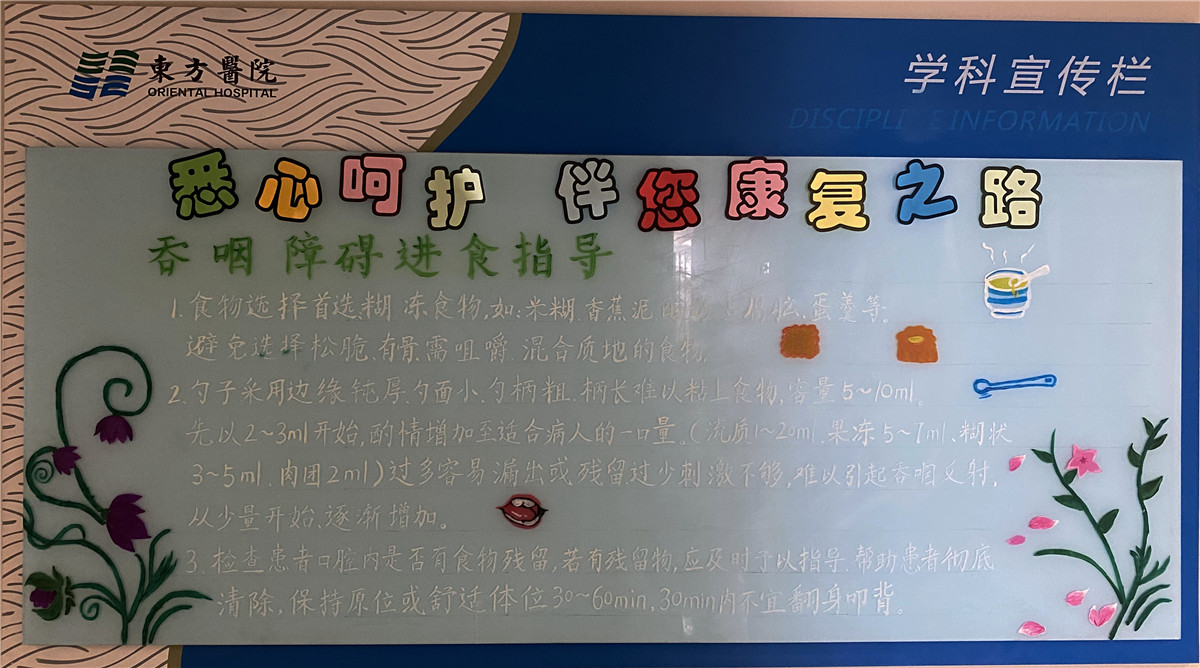 東方醫院
ORIENTAL HOSPITAL
学科宣传栏
DISCIPLINE INFORMATION
悉心呵护 伴您康复之路
吞咽障碍进食指导
1.食物选择首选:糊.冻食物,如:米糊.香蕉泥 蛋羹等。
避免选择松脆.有骨.需咀嚼.混合质地的食物.
2.勺子采用边缘钝厚勺面小.勺柄粗.柄长难以粘上食物,容量5~10ml。
先以2~3ml开始,酌情增加至适合病人的一口量。(流质1~20ml.果冻5~7ml.糊状
3~5ml.肉团2ml)过多容易漏出或残留过少刺激不够,难以引起吞咽反射,
从少量开始、逐渐增加。
3.检查患者口腔内是否有食物残留,若有残留物,应及时予以指导.帮助患者彻底
清除.保持原位或舒适体位30~60min,30min内不宜翻身叩背。